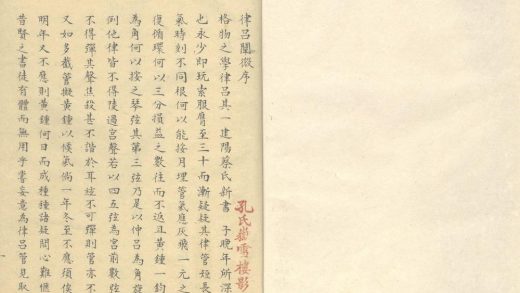 律呂闡微序
格物之學律呂其一建陽蔡氏新書 子晚年所深
也永少即玩索服膺至三十而漸疑疑其律管短長
氣時刻不同根何以能按月埋管氣應灰飛一元之
復循環何以三分損益之數往而不返且黃鍾一鈞
為角何以按之琴弦其第三弦乃是以仲呂為角旋
倒他律皆不得陵過宮聲若以四五弦為宮前數弦
不得彈其聲焦殺甚不諧於耳弦不可彈則管亦不
又如多截管擬黃鍾以候氣倘一年冬至不應須俟
明年又不應則黃鍾何日而成種種諸疑問心難愜
昔賢之書徒有體而無用乎嘗妄意為律呂管見取
孔氏嶽雪樓影